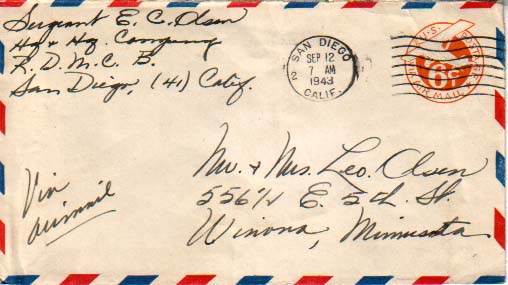 Sergeant E. C. Olsen
Hq + Hq. Company
R. D. M. C. B.
San Diego, (41) Calif.
SAN DIEGO
2
SEP 12
7 AM
1943
CALIF.
U.S.
6¢
AIR MAIL
Via
airmail
Mr. + Mrs. Leo. Olsen
556½ E. 5th. St.
Winona, Minnesota